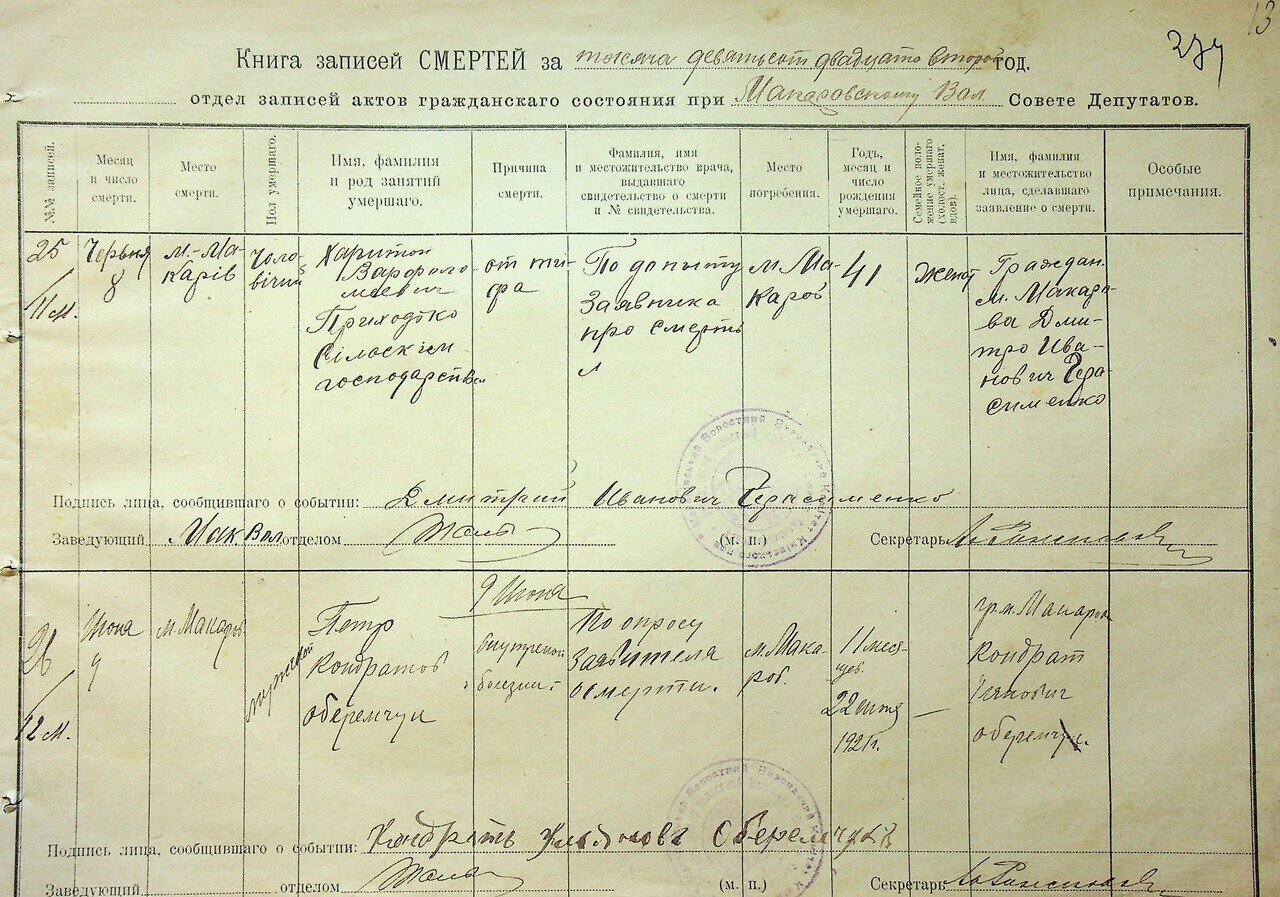 13
274
Книга записей СМЕРТЕЙ за тысяча девятьсот двадцать второй год.
отдел записей актов гражданского состояния при Макаровскому Вол. Совете Депутатов.
№№ записей.
Месяц и число смерти.
Место смерти.
Пол умершаго.
Имя, фамилия и род занятий умершаго.
Причина смерти.
Фамилия, имя и местожительство врача, выдавшаго свидетельство о смерти и № свидетельства.
Место погребения.
Годъ, месяц и число рождения умершаго.
Семейное положение умершаго (холост, женат, вдов).
Имя, фамилия и местожительство лица, сделавшаго заявление о смерти.
Особые примечания.
25
11 м.
Червня
8
м. Ма-
карів
Чоло-
вічий
Харитон
Варфоло-
меевич
Приходько
Сільскім
господарства
от ти-
фа
По допыту
Заявника
про смерть
м. Ма-
каров
41
Женат
Граждан.
м. Макаро-
ва Дми-
тро Ива-
нович Гера-
сименко
Подпись лица, сообщившаго о событии: Дмитрий Иванович Герасименко
Заведующий Мак Вол отделом
(м. п.)
Секретарь
26
12 м.
Июня
9
м. Макаров
мужской
Петр
Кондратов
Оберемчук
9 Июня
внутреной
болезни
По опросу
Заявителя
о смерти.
м. Мака-
ров.
11 меся-
цев.
22 июля
1921 г.
—
гр. м. Макаров
Кондрат
оберемчук.
Подпись лица, сообщившаго о событии: Кондрать Ульянова Оберемчукъ
Заведующий отделом
(м. п.)
Секретарь